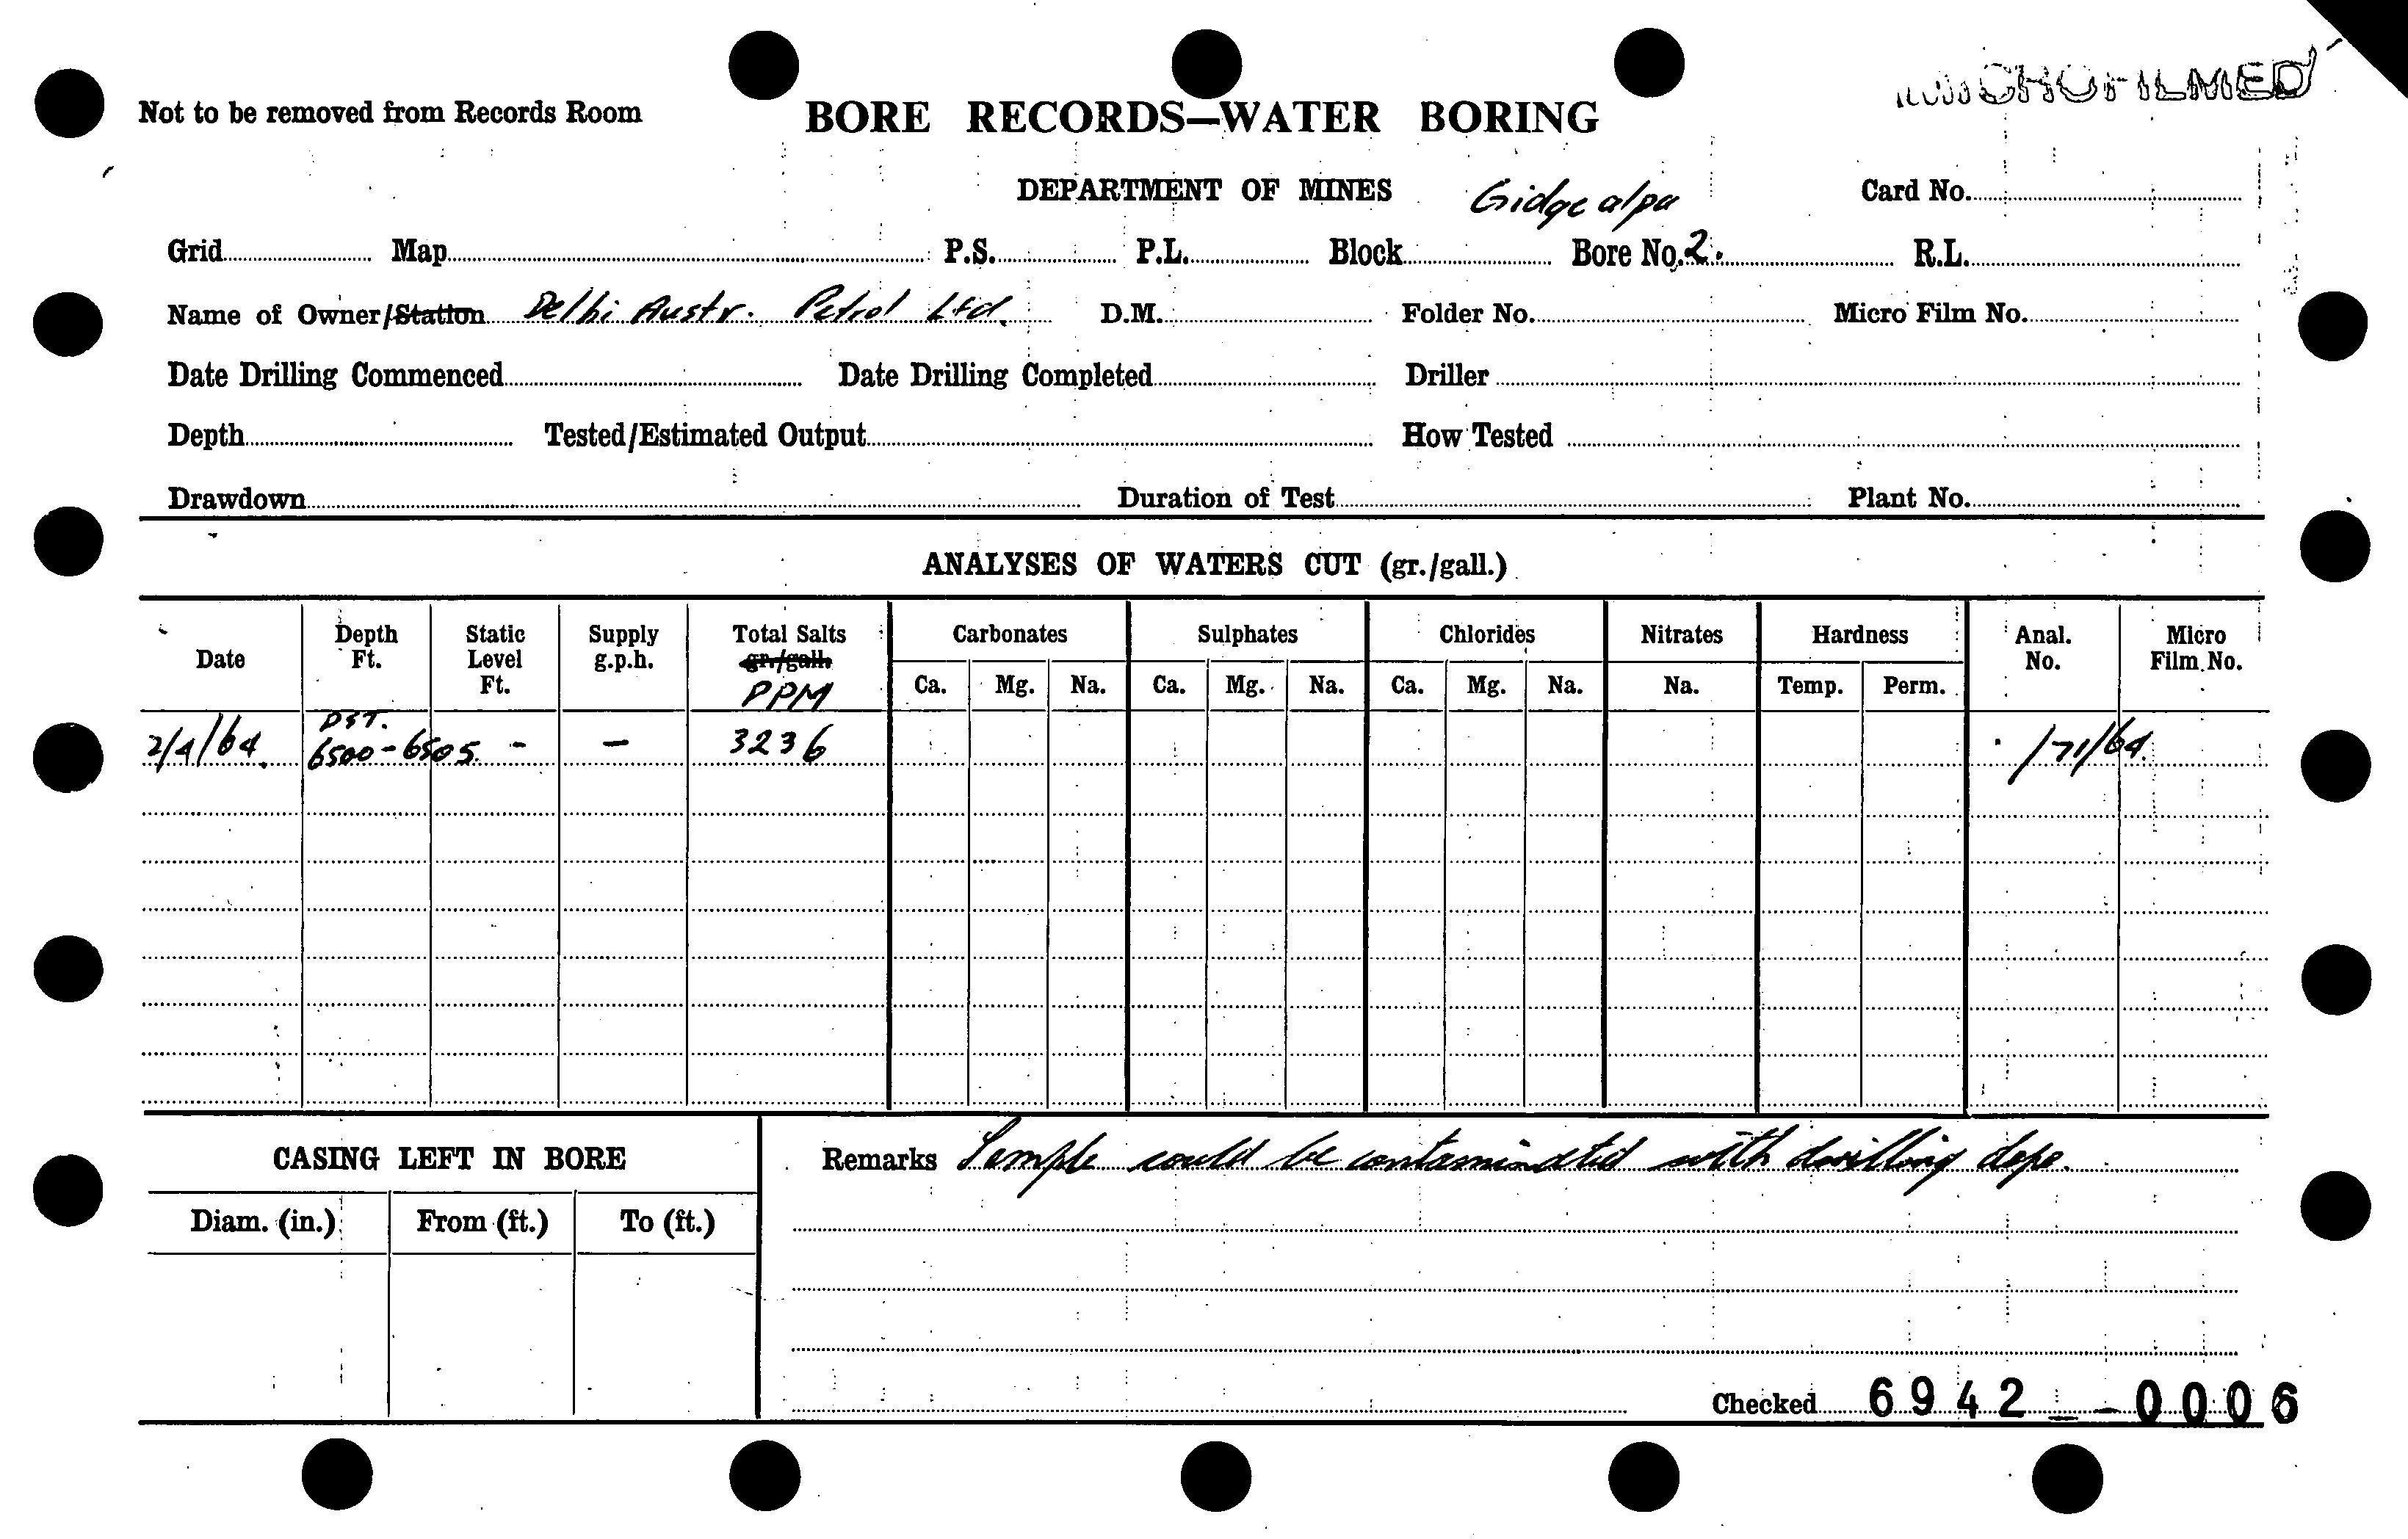 MICROFILMED
Not to be removed from Records Room
BORE RECORDS—WATER BORING
DEPARTMENT OF MINES
Gidgealpa
Card No.
Grid Map P.S. P.L. Block Bore No. 2. R.L.
Name of Owner/Station Delhi Austr. Petrol Ltd. D.M. Folder No. Micro Film No.
Date Drilling Commenced Date Drilling Completed Driller
Depth Tested/Estimated Output How Tested
Drawdown Duration of Test Plant No.
ANALYSES OF WATERS CUT (gr./gall.)
Date Depth Ft. Static Level Ft. Supply g.p.h. Total Salts gr./gall. PPM Carbonates Sulphates Chlorides Nitrates Hardness Anal. No. Micro Film No.
Ca. Mg. Na. Ca. Mg. Na. Ca. Mg. Na. Na. Temp. Perm.
DST.
2/4/64. 6500-6505. - - 3236 171/64.
CASING LEFT IN BORE
Diam. (in.) From (ft.) To (ft.)
Remarks Sample could be contaminated with drilling
Checked 6942--0006